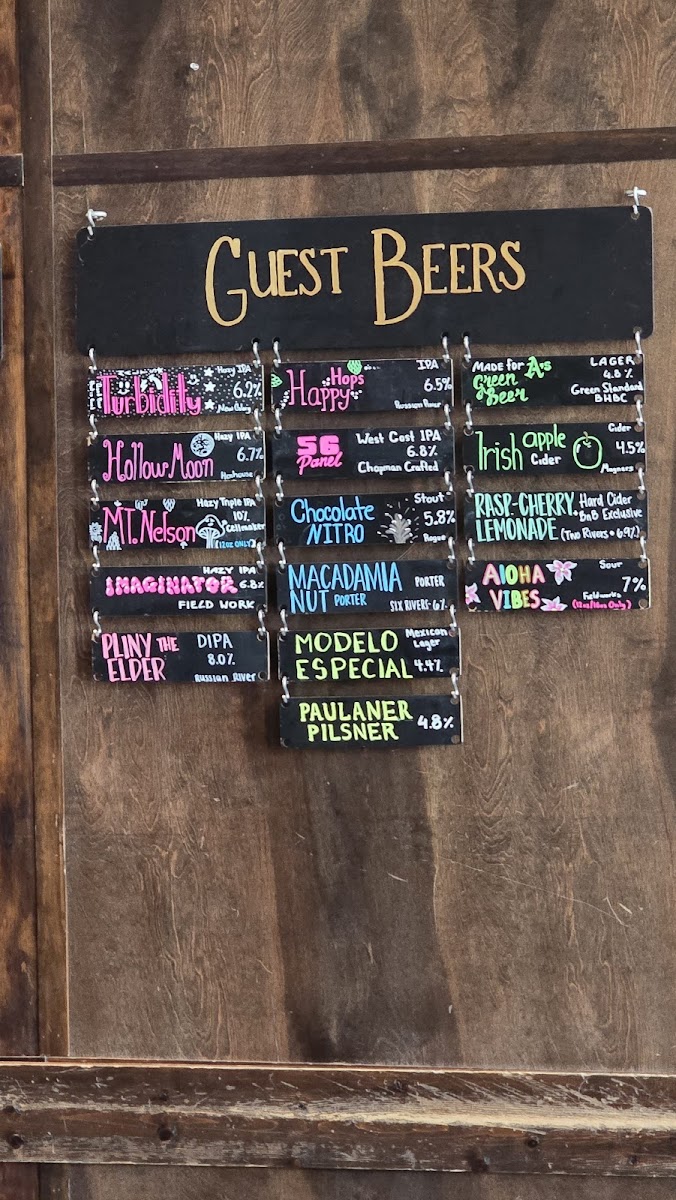 GUEST BEERS
Hazy IPA
Turbidity 6.2%
Hazy IPA
Hollow Moon 6.7%
Hazy Triple IPA
MT. Nelson 10%
Cellarmaker
(12oz ONLY)
HAZY IPA
IMAGINATOR 6.8%
FIELD WORK
PLINY THE DIPA
ELDER 8.0%
Russian River
IPA
Hops
Happy 6.5%
Russian River
56 West Cost IPA
Panel 6.8%
Chapman Crafted
Stout
Chocolate 5.8%
NITRO
Rogue
MACADAMIA PORTER
NUT PORTER SIX RIVERS- 6%
MODELO Mexican
Lager
ESPECIAL 4.4%
PAULANER 4.8%
PILSNER
MADE for A's LAGER
Green 4.8 %
Beer Green Standard
BHBC
Cider
Irish apple 4.5%
Cider
Magners
RASP-CHERRY Hard Cider
BnB Exclusive
LEMONADE (Two Rivers • 6.9%)
Sour
AlOHA 7%
VIBES Fieldworks
(12oz/16oz Only)